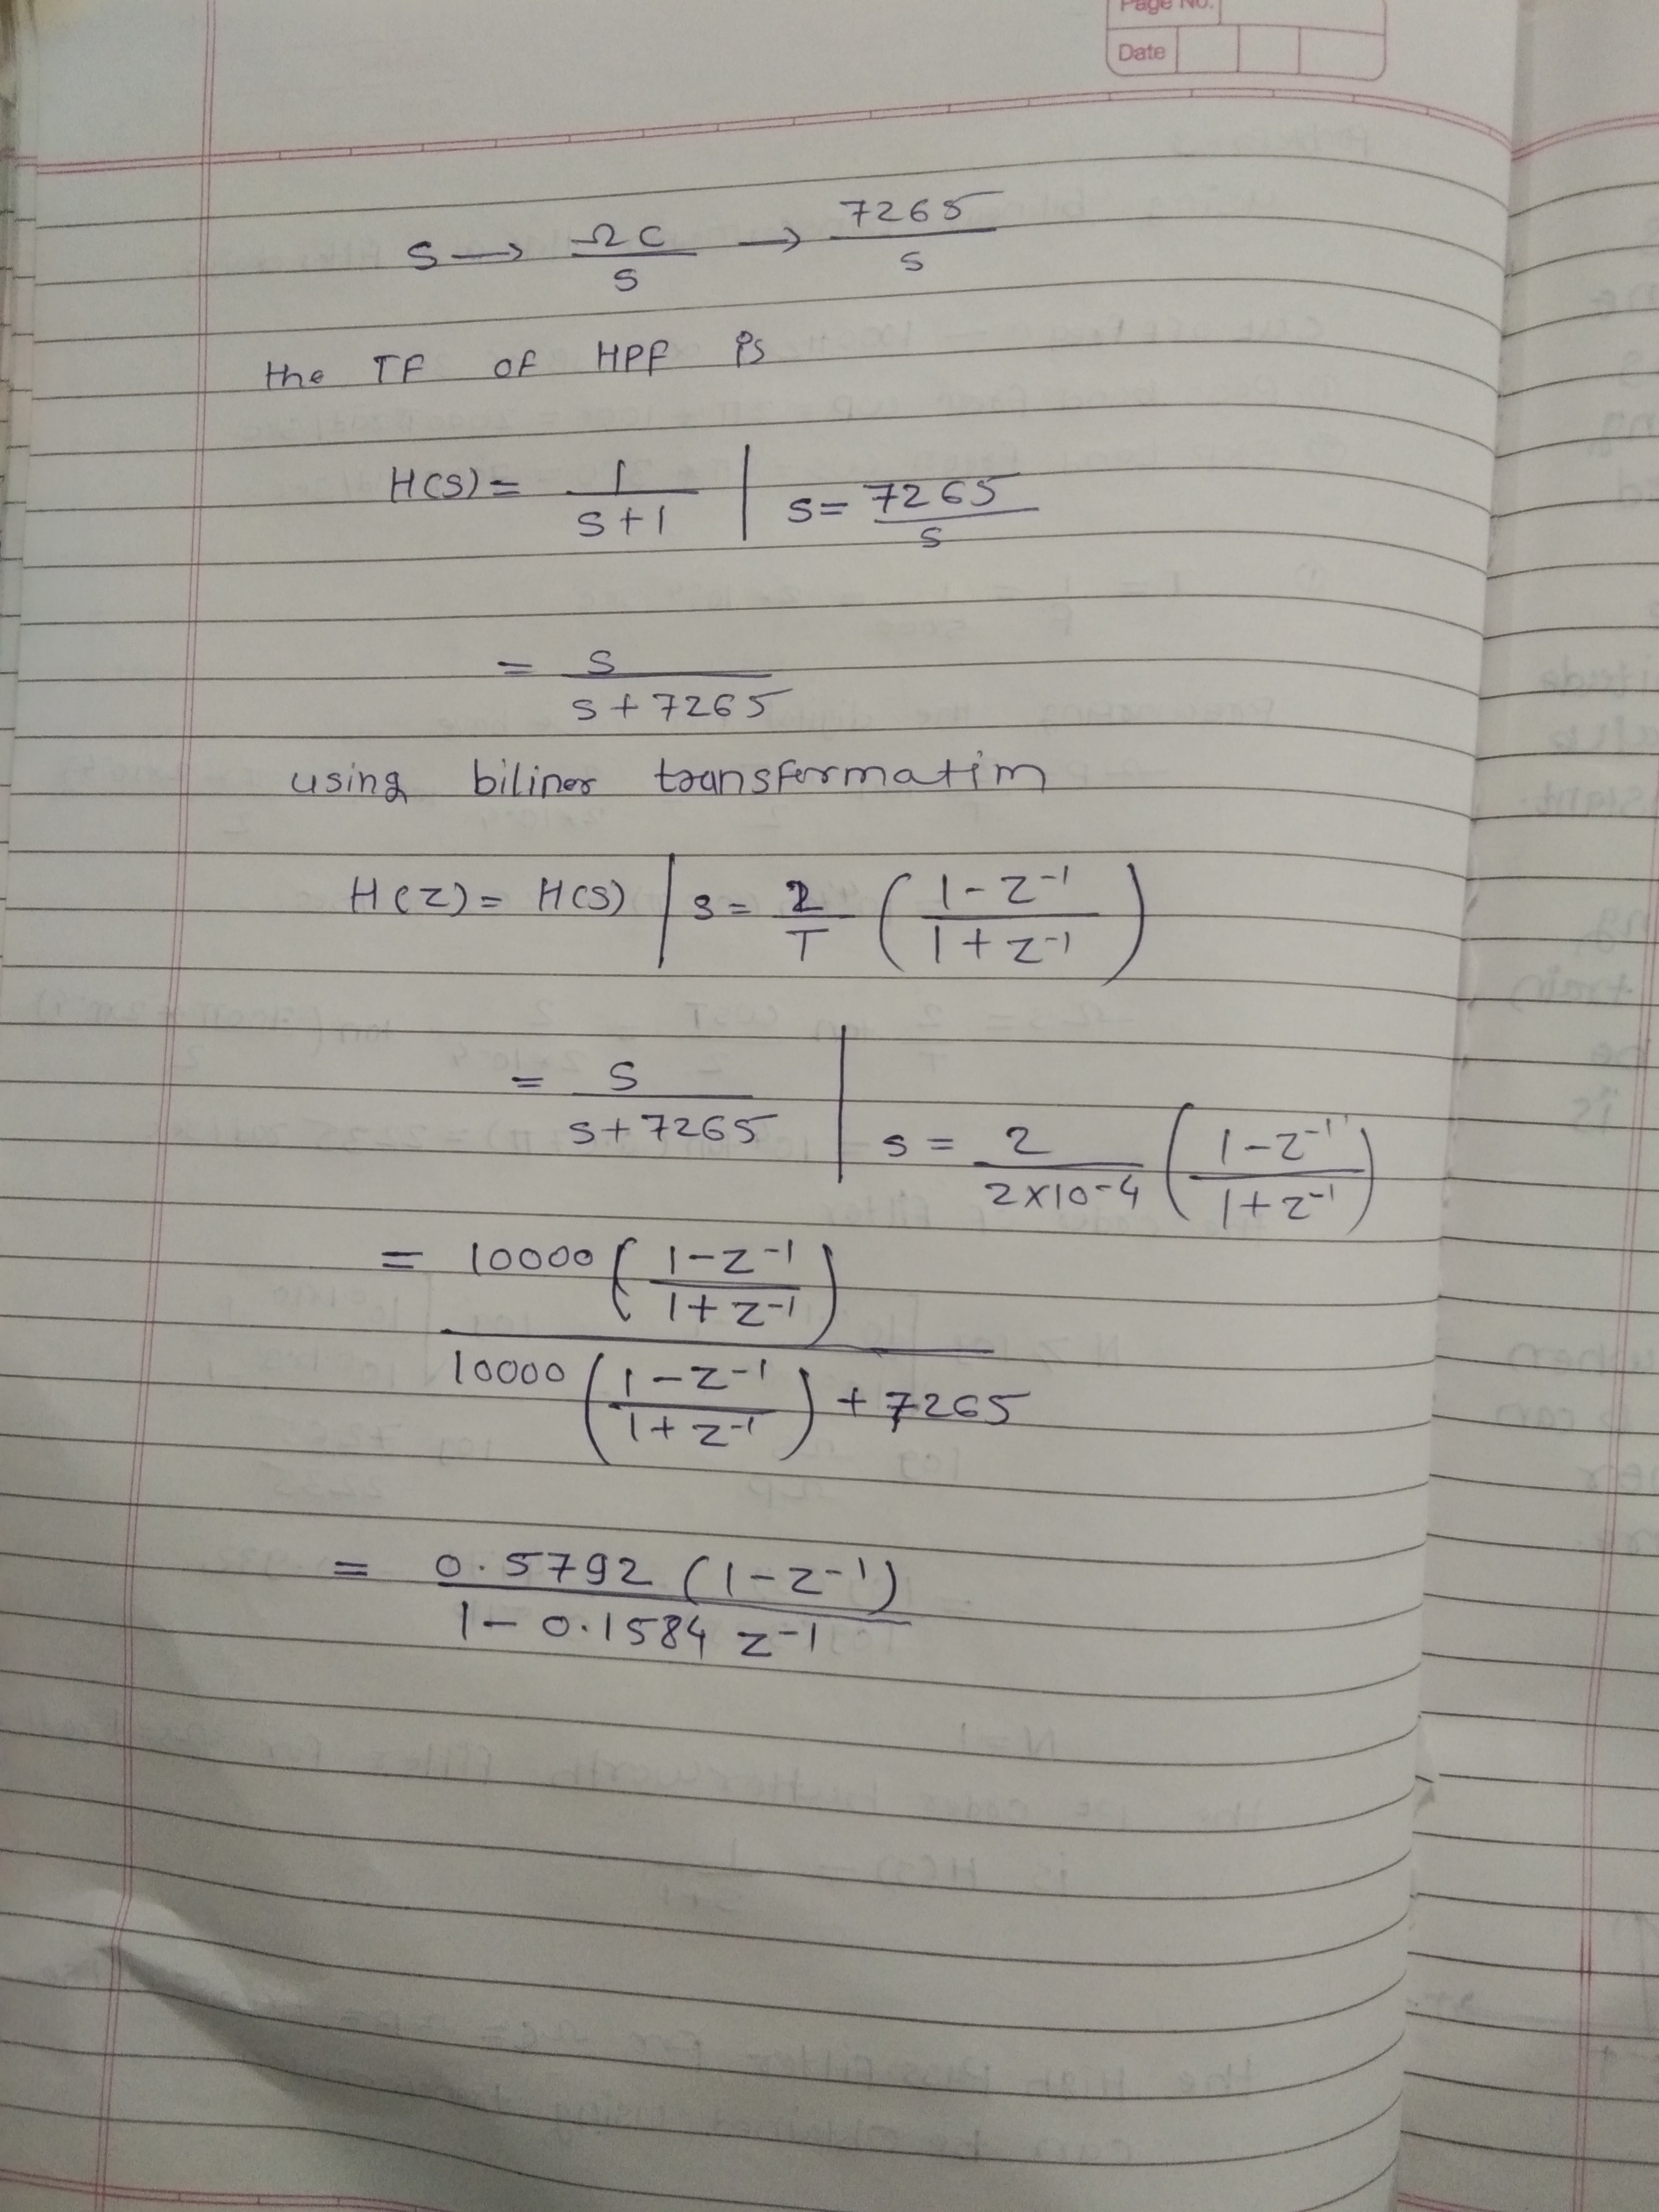 Page No.
Date
S → Ωc/s → 7265/s
the TF of HPF is
H(S) = 1/(S+1) | S = 7265/s
= S/(s+7265)
using biliner transformatim
H(Z) = H(S) | s = 2/T ((1-Z⁻¹)/(1+Z⁻¹))
= S/(s+7265) | s = 2/(2×10⁻⁴) ((1-Z⁻¹)/(1+Z⁻¹))
= 10000((1-Z⁻¹)/(1+Z⁻¹)) / (10000((1-Z⁻¹)/(1+Z⁻¹)) + 7265)
= 0.5792 (1-Z⁻¹) / (1-0.1584 Z⁻¹)